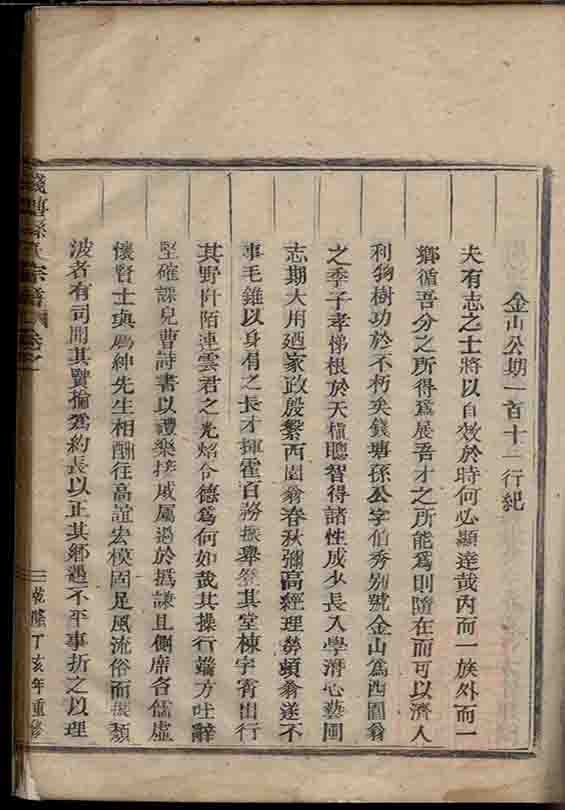 金山公期一百十二行紀
夫有志之士將以自效於時何必顯達哉內而一族外而一
鄉循吾分之所得為展吾才之所能為則隨在而可以濟人
利物樹功於不朽矣錢塘孫公字伯秀別號金山為西園翁
之季子孝悌根於天植聰智得諸性成少長入學潛心藝圃
志期大用廼家政殷繫西園翁春秋彌高經理勞頓翁遂不
事毛錐以身肩之長才揮霍百務振舉登其堂棟宇宵出行
其野阡陌連雲君之光焰令德為何如哉其操行端方吐辭
堅確課兒曹詩書以禮樂接戚屬過於撝謙且側席名儒虛
懷賢士與縉紳先生相酬往高誼宏模固足風流俗而振頹
波者有司聞其賢掄為約長以正其鄉遇不平事折之以理
錢塘孫氏宗譜 卷之
乾隆丁亥年重修